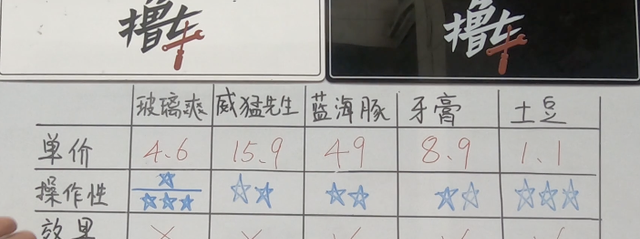 撸车 撸车
玻璃爽 威猛先生 蓝海豚 牙膏 土豆
单价 4.6 15.9 49 8.9 1.1
操作性
效果